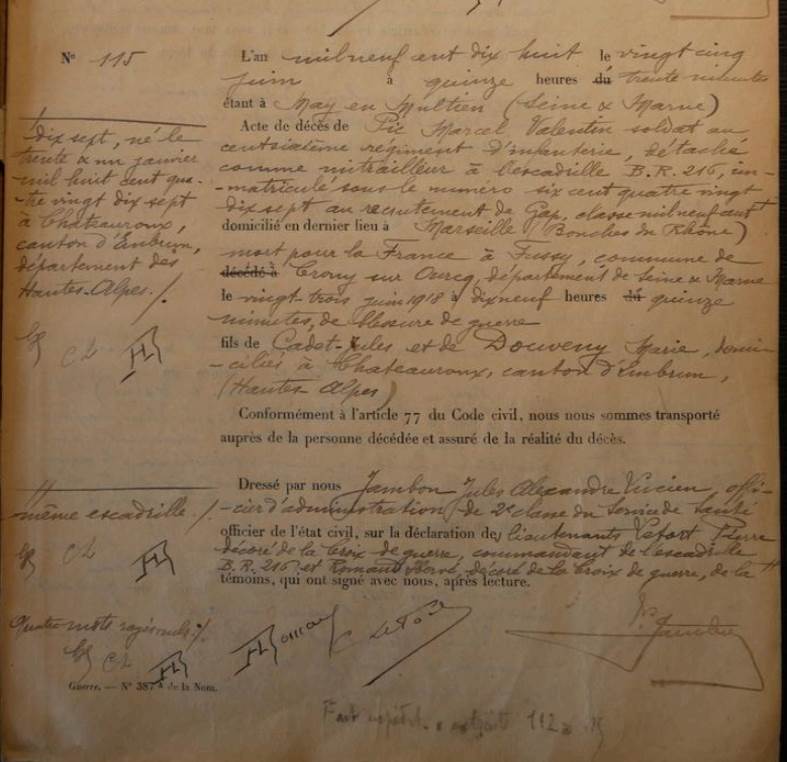 N° 115
L'an mil neuf cent dix huit le vingt cinq
juin à quinze heures du trente minutes
étant à May en Multien (Seine & Marne)
Acte de décès de Pic Marcel Valentin soldat au
centsixième régiment d'infanterie, détaché
comme mitrailleur à l'escadrille B.R. 216, im-
-matriculé sous le numéro six cent quatre vingt
dix sept au recrutement de Gap, classe mil neuf cent
domicilié en dernier lieu à Marseille (Bouches du Rhône)
mort pour la France à Fussy, commune de
décédé à Crouy sur Ourcq, département de Seine & Marne
le vingt-trois juin 1918 à dix neuf heures du quinze
minutes, de blessure de guerre
fils de Cadet-Jules et de Douveny Marie, domi-
-ciliés à Chateauroux, canton d'Embrun,
(Hautes-Alpes)
Conformément à l'article 77 du Code civil, nous nous sommes transporté
auprès de la personne décédée et assuré de la réalité du décès.
Dressé par nous Jambon Jules Alexandre Lucien, offi-
-cier d'administration de 2e classe du Service de Santé
officier de l'état civil, sur la déclaration des lieutenants Lefort Pierre
décoré de la Croix de guerre, commandant de l'escadrille
B.R. 216 et Romand Hervé décoré de la Croix de guerre, de la
témoins, qui ont signé avec nous, après lecture.
dix sept, né le
trente & un janvier
mil huit cent qua-
-tre vingt dix sept
à Chateauroux,
canton d'Embrun,
département des
Hautes-Alpes./.
même escadrille./.
Quatre mots rayés nuls./.
Jambon
Guerre. — N° 387 A de la Nom.
112